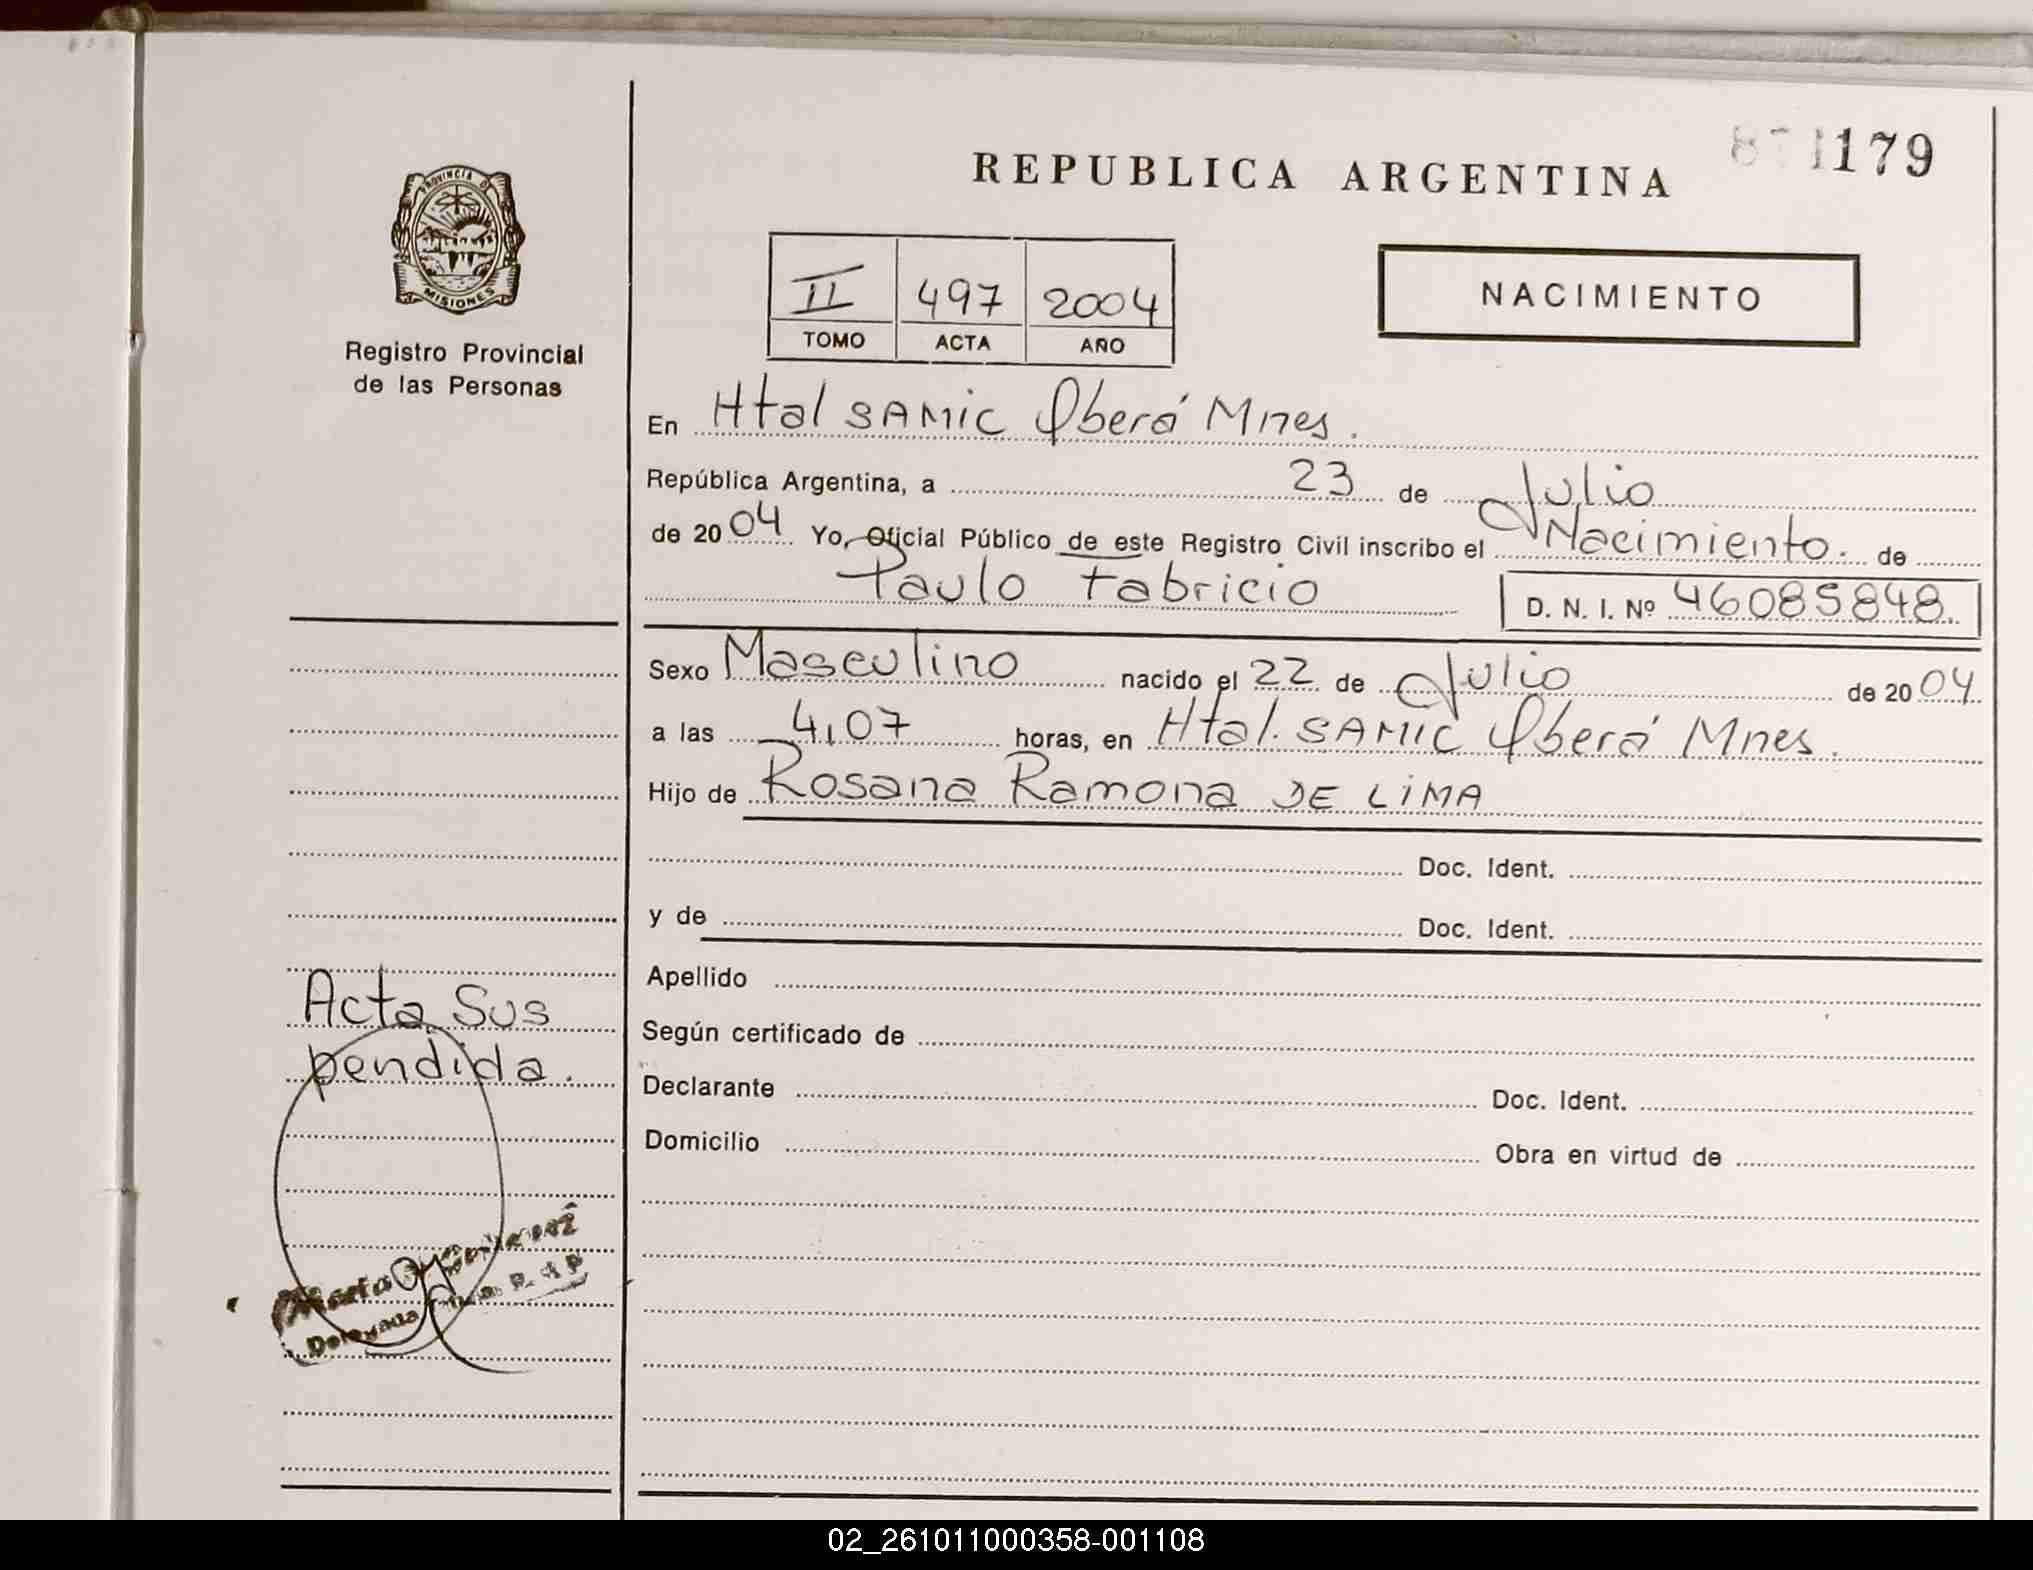 REPUBLICA ARGENTINA
179
PROVINCIA DE
MISIONES
Registro Provincial
de las Personas
II 497 2004
TOMO ACTA AÑO
NACIMIENTO
En Htal SAMIC Oberá Mnes.
República Argentina, a 23 de Julio
de 2004 Yo, Oficial Público de este Registro Civil inscribo el Nacimiento. de
Paulo Fabricio D. N. I. Nº 46085848.
Sexo Masculino nacido el 22 de Julio de 2004
a las 4,07 horas, en Htal. SAMIC Oberá Mnes.
Hijo de Rosana Ramona DE LiMA
Doc. Ident.
y de Doc. Ident.
Apellido
Según certificado de
Declarante Doc. Ident.
Domicilio Obra en virtud de
Acta Sus
pendida.
Delegada R. d P
02_261011000358-001108